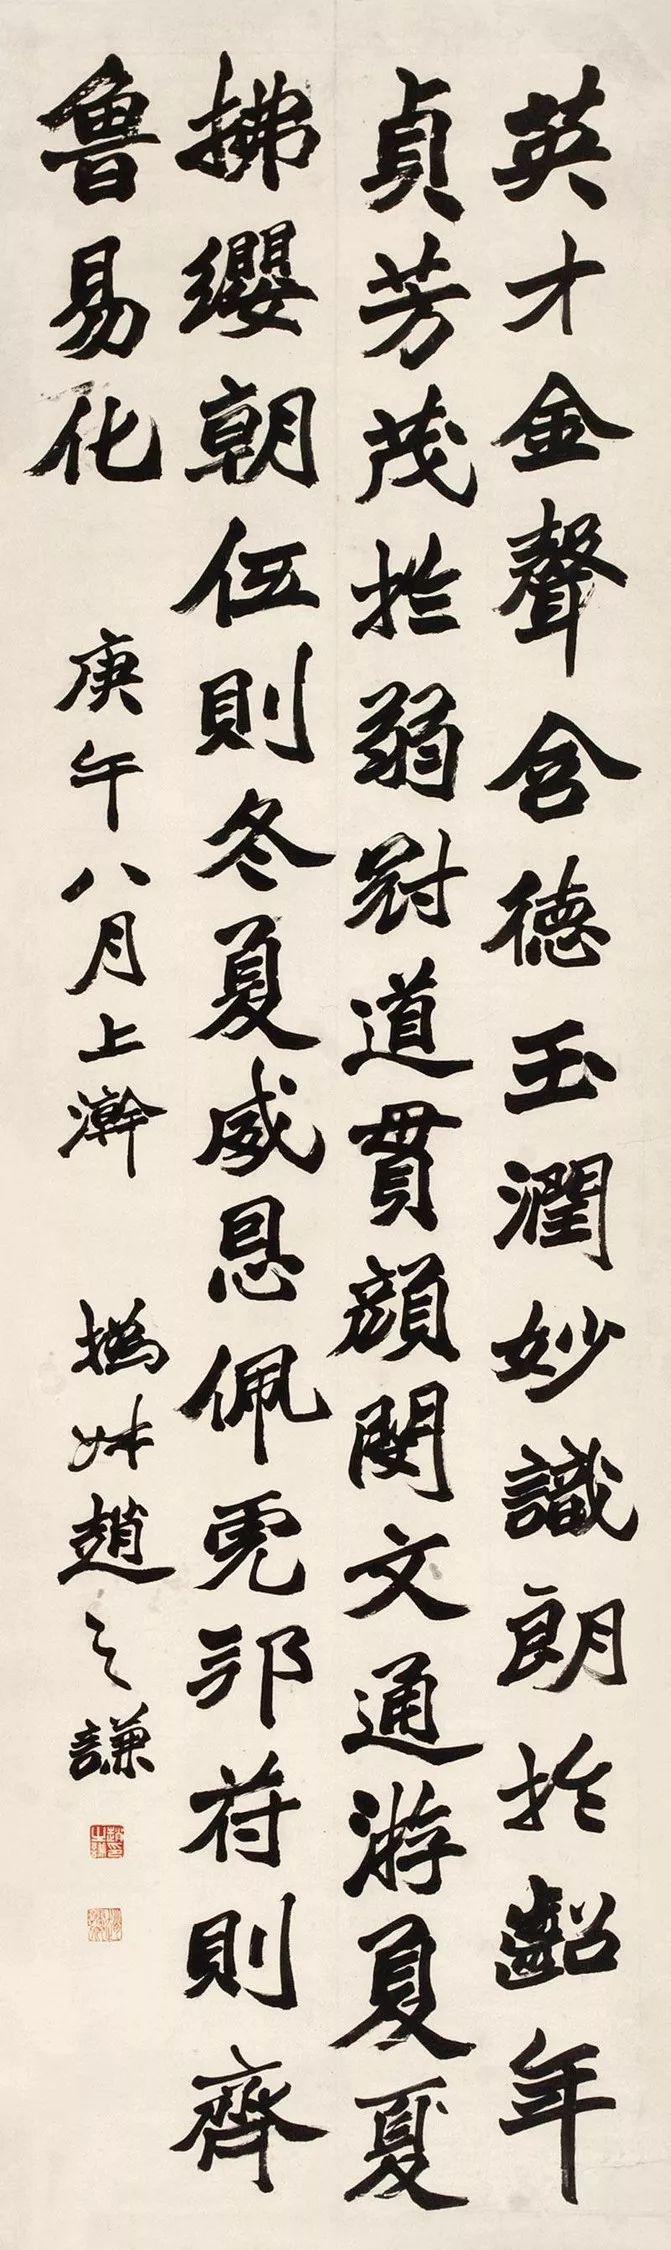 英才金聲含德玉潤妙識朗扵齠年
貞芳茂扵弱對道貫顏閔文通游夏夏
拂纓朝伍則冬夏威恩佩虎邦苻則齊
魯易化
庚午八月上澣
撝叔趙之謙